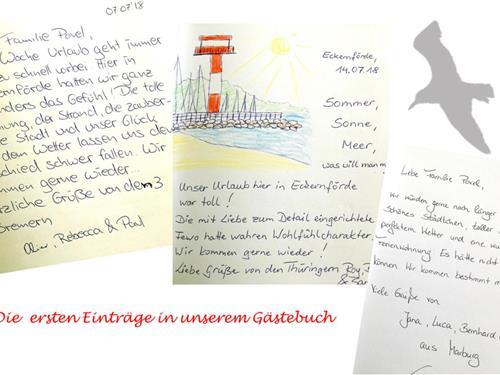 07.07.18
Familie Povel,
Woche Urlaub geht immer
zu schnell vorbei. Hier in
ernförde hatten wir ganz
onders das Gefühl! Die tolle
nung, der Strand, die zauber-
te Stadt und unser Glück
dem Wetter lassen uns den
schied schwer fallen. Wir
mmen gerne wieder...
rzliche Grüße von den 3
Bremern
Rebecca & Paul
Eckernförde,
14.07.18
Sommer,
Sonne,
Meer,
was will man m
Unser Urlaub hier in Eckernförde
war toll!
Die mit Liebe zum Detail eingerichtete
Fewo hatte wahren Wohlfühlcharakter
Wir kommen gerne wieder!
Liebe Grüße von den Thüringern Roy,
&
Liebe Familie Povel,
Wir würden gerne noch länger
Schönes Städtchen, toller
perfektem Wetter und eine
Ferienwohnung. Es hätte nicht
können. Wir kommen bestimmt
Viele Grüße von
Jana, Luca, Bernhard
aus Marburg
Die ersten Einträge in unserem Gästebuch